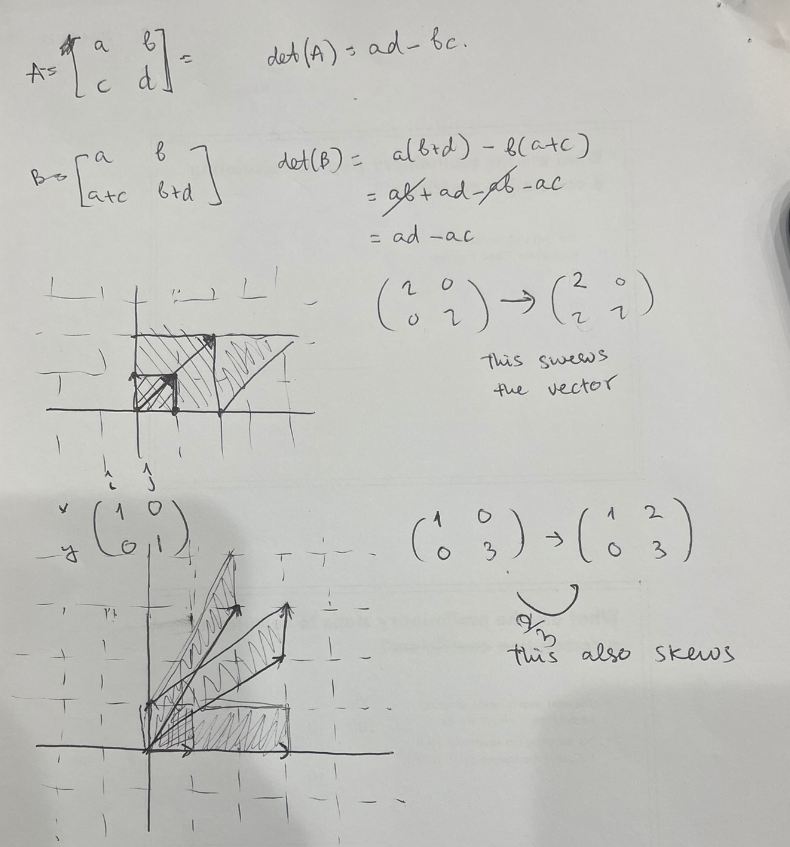 A = [a b
c d] =
det(A) = ad - bc.
B = [a b
a+c b+d]
det(B) = a(b+d) - b(a+c)
= ab + ad - ab - ac
= ad - ac
(2 0
0 2) → (2 0
2 2)
this swews
the vector
î ĵ
x (1 0
y 0 1)
(1 0
0 3) → (1 2
0 3)
2/3
this also skews